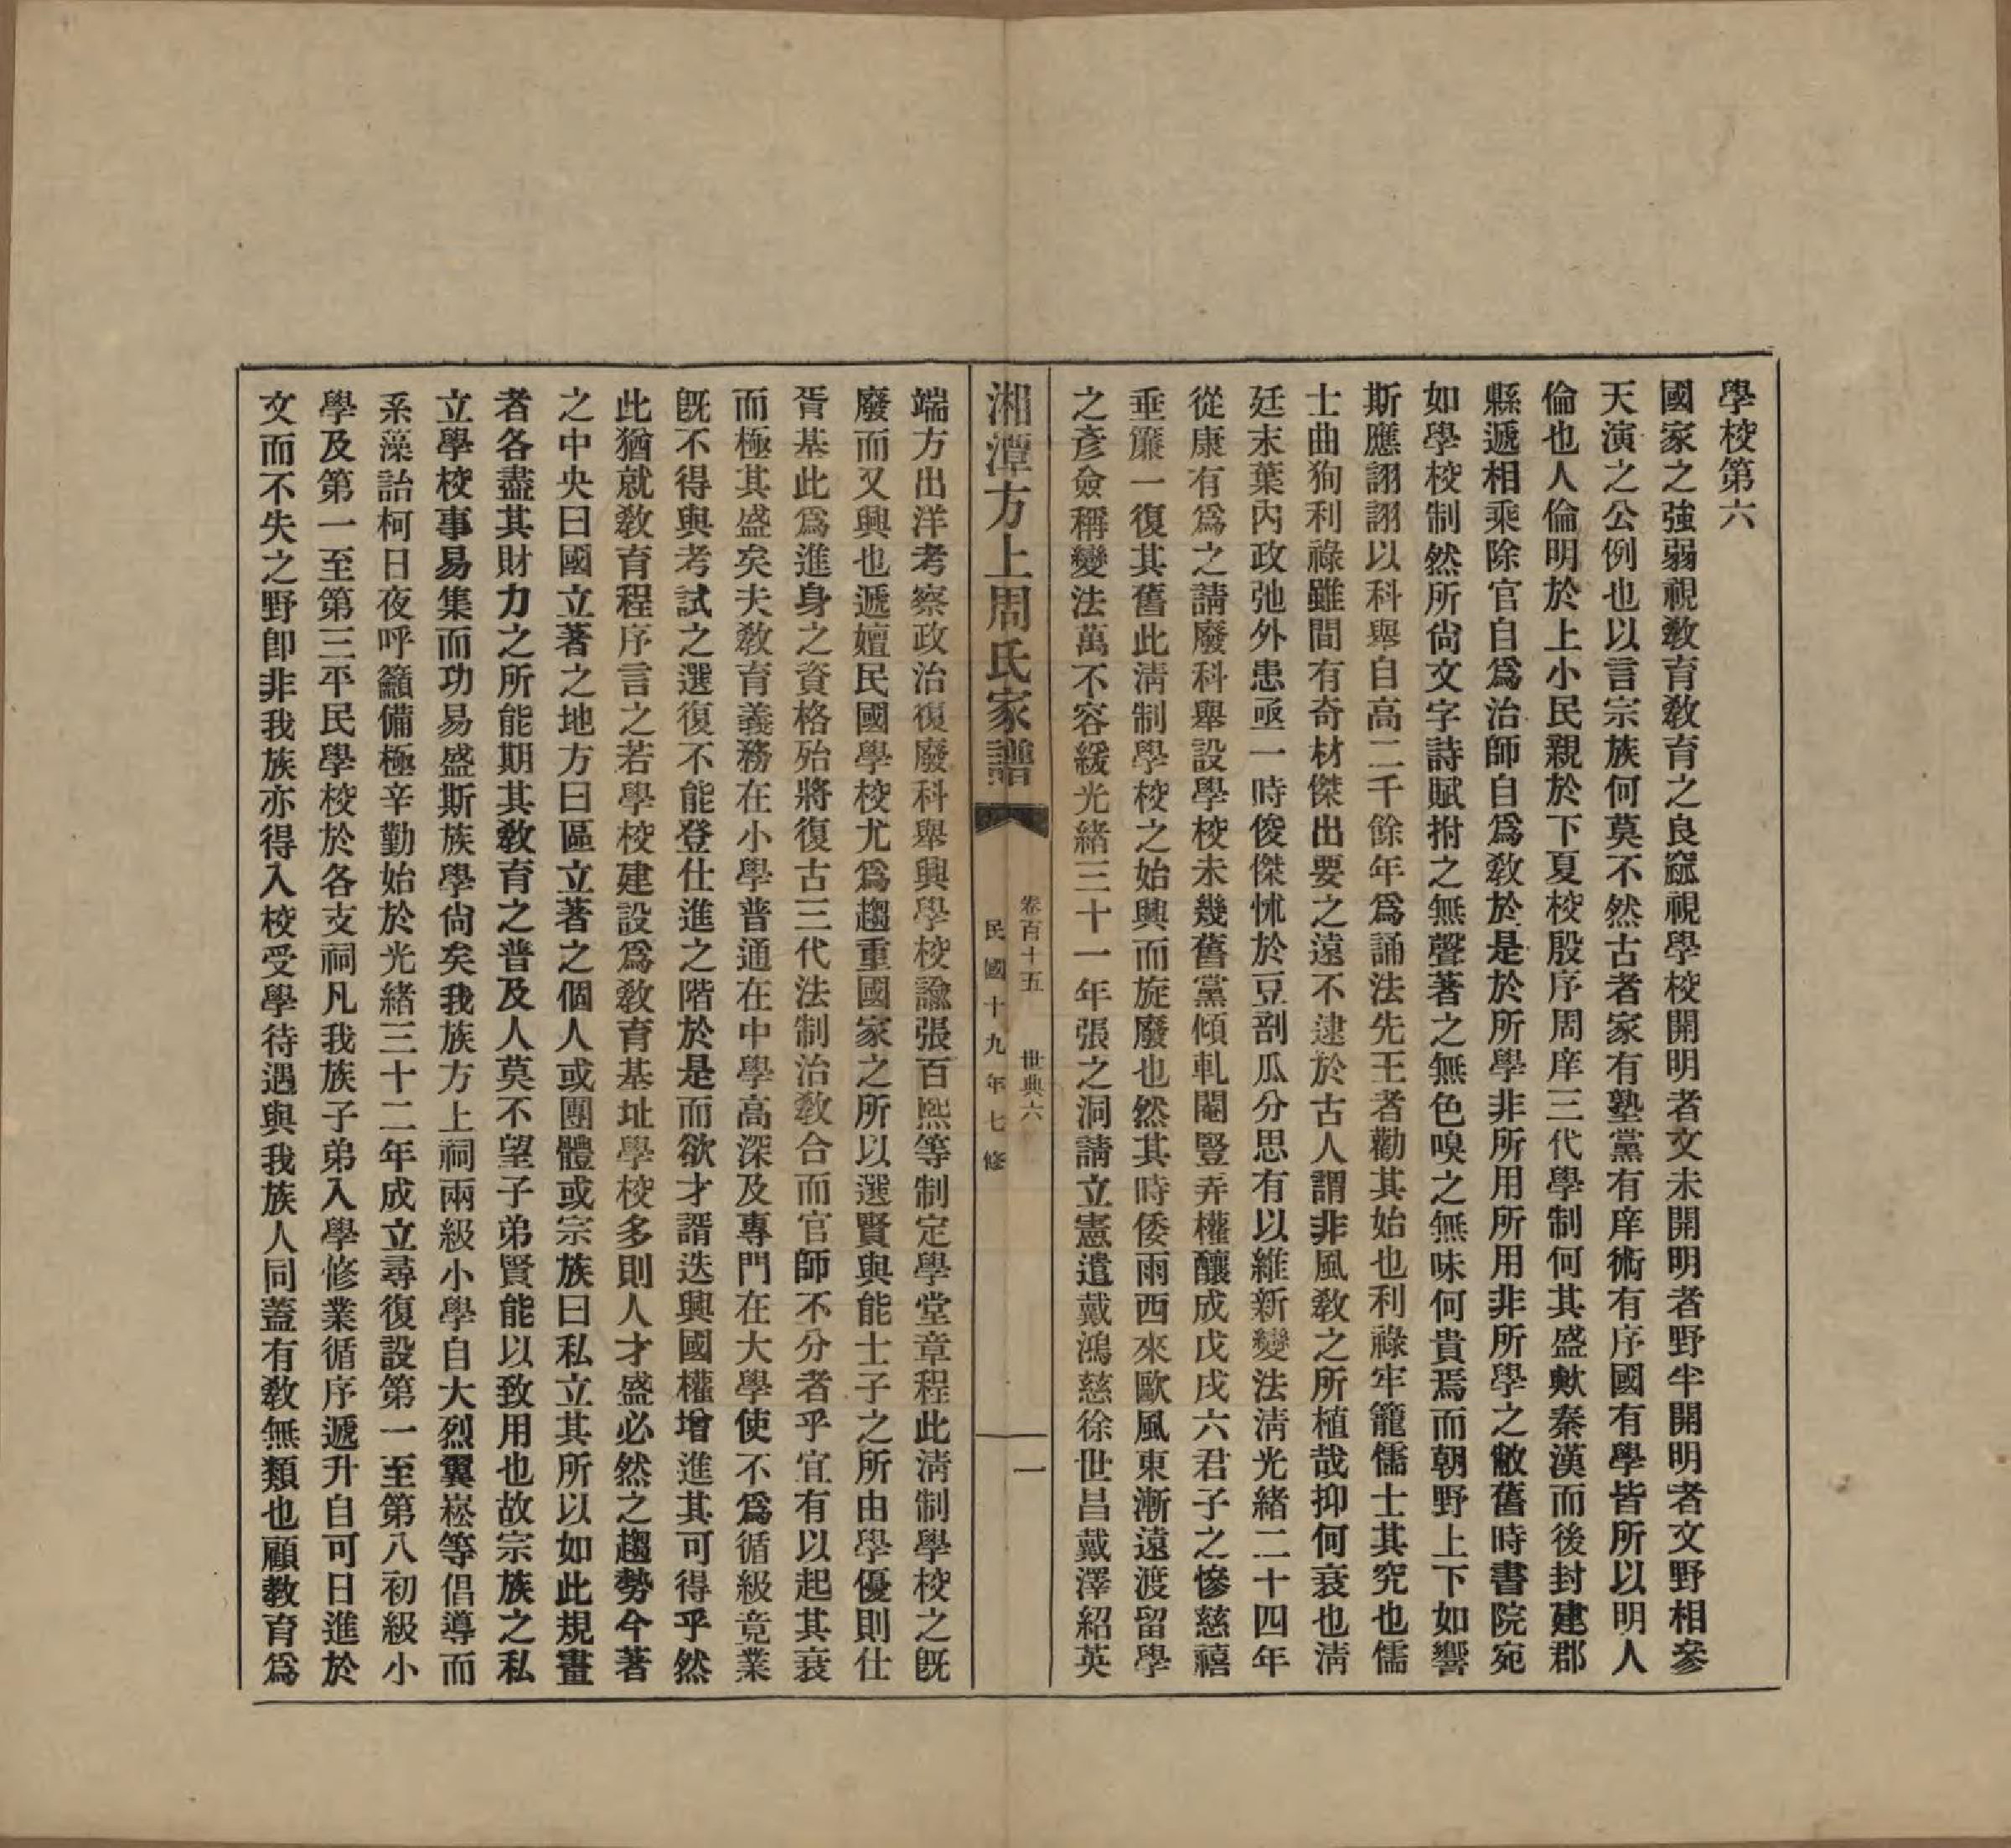 學校第六
國家之強弱視敎育敎育之良窳視學校開明者文未開明者野半開明者文野相參
天演之公例也以言宗族何莫不然古者家有塾黨有庠術有序國有學皆所以明人
倫也人倫明於上小民親於下夏校殷序周庠三代學制何其盛歟秦漢而後封建郡
縣遞相乘除官自爲治師自爲敎於是於所學非所用所用非所學之敝舊時書院宛
如學校制然所尙文字詩賦拊之無聲著之無色嗅之無味何貴焉而朝野上下如響
斯應詡詡以科舉自高二千餘年爲誦法先王者勸其始也利祿牢籠儒士其究也儒
士曲狥利祿雖間有奇材傑出要之遠不逮於古人謂非風敎之所植哉抑何衰也淸
廷末葉內政弛外患亟一時俊傑怵於豆剖瓜分思有以維新變法淸光緒二十四年
從康有爲之請廢科舉設學校未幾舊黨傾軋閹豎弄權釀成戊戌六君子之慘慈禧
垂簾一復其舊此淸制學校之始興而旋廢也然其時倭雨西來歐風東漸遠渡留學
之彥僉稱變法萬不容緩光緒三十一年張之洞請立憲遣戴鴻慈徐世昌戴澤紹英
湘潭方上周氏家譜
卷百十五 世典六
民國十九年七修
一
端方出洋考察政治復廢科舉興學校諭張百熙等制定學堂章程此淸制學校之旣
廢而又興也遞嬗民國學校尤爲趨重國家之所以選賢與能士子之所由學優則仕
胥基此爲進身之資格殆將復古三代法制治敎合而官師不分者乎宜有以起其衰
而極其盛矣夫敎育義務在小學普通在中學高深及專門在大學使不爲循級竟業
旣不得與考試之選復不能登仕進之階於是而欲才諝迭興國權增進其可得乎然
此猶就敎育程序言之若學校建設爲敎育基址學校多則人才盛必然之趨勢今著
之中央曰國立著之地方曰區立著之個人或團體或宗族曰私立其所以如此規畫
者各盡其財力之所能期其敎育之普及人莫不望子弟賢能以致用也故宗族之私
立學校事易集而功易盛斯族學尙矣我族方上祠兩級小學自大烈翼崧等倡導而
系藻詒柯日夜呼籲備極辛勤始於光緒三十二年成立尋復設第一至第八初級小
學及第一至第三平民學校於各支祠凡我族子弟入學修業循序遞升自可日進於
文而不失之野卽非我族亦得入校受學待遇與我族人同蓋有敎無類也顧敎育爲